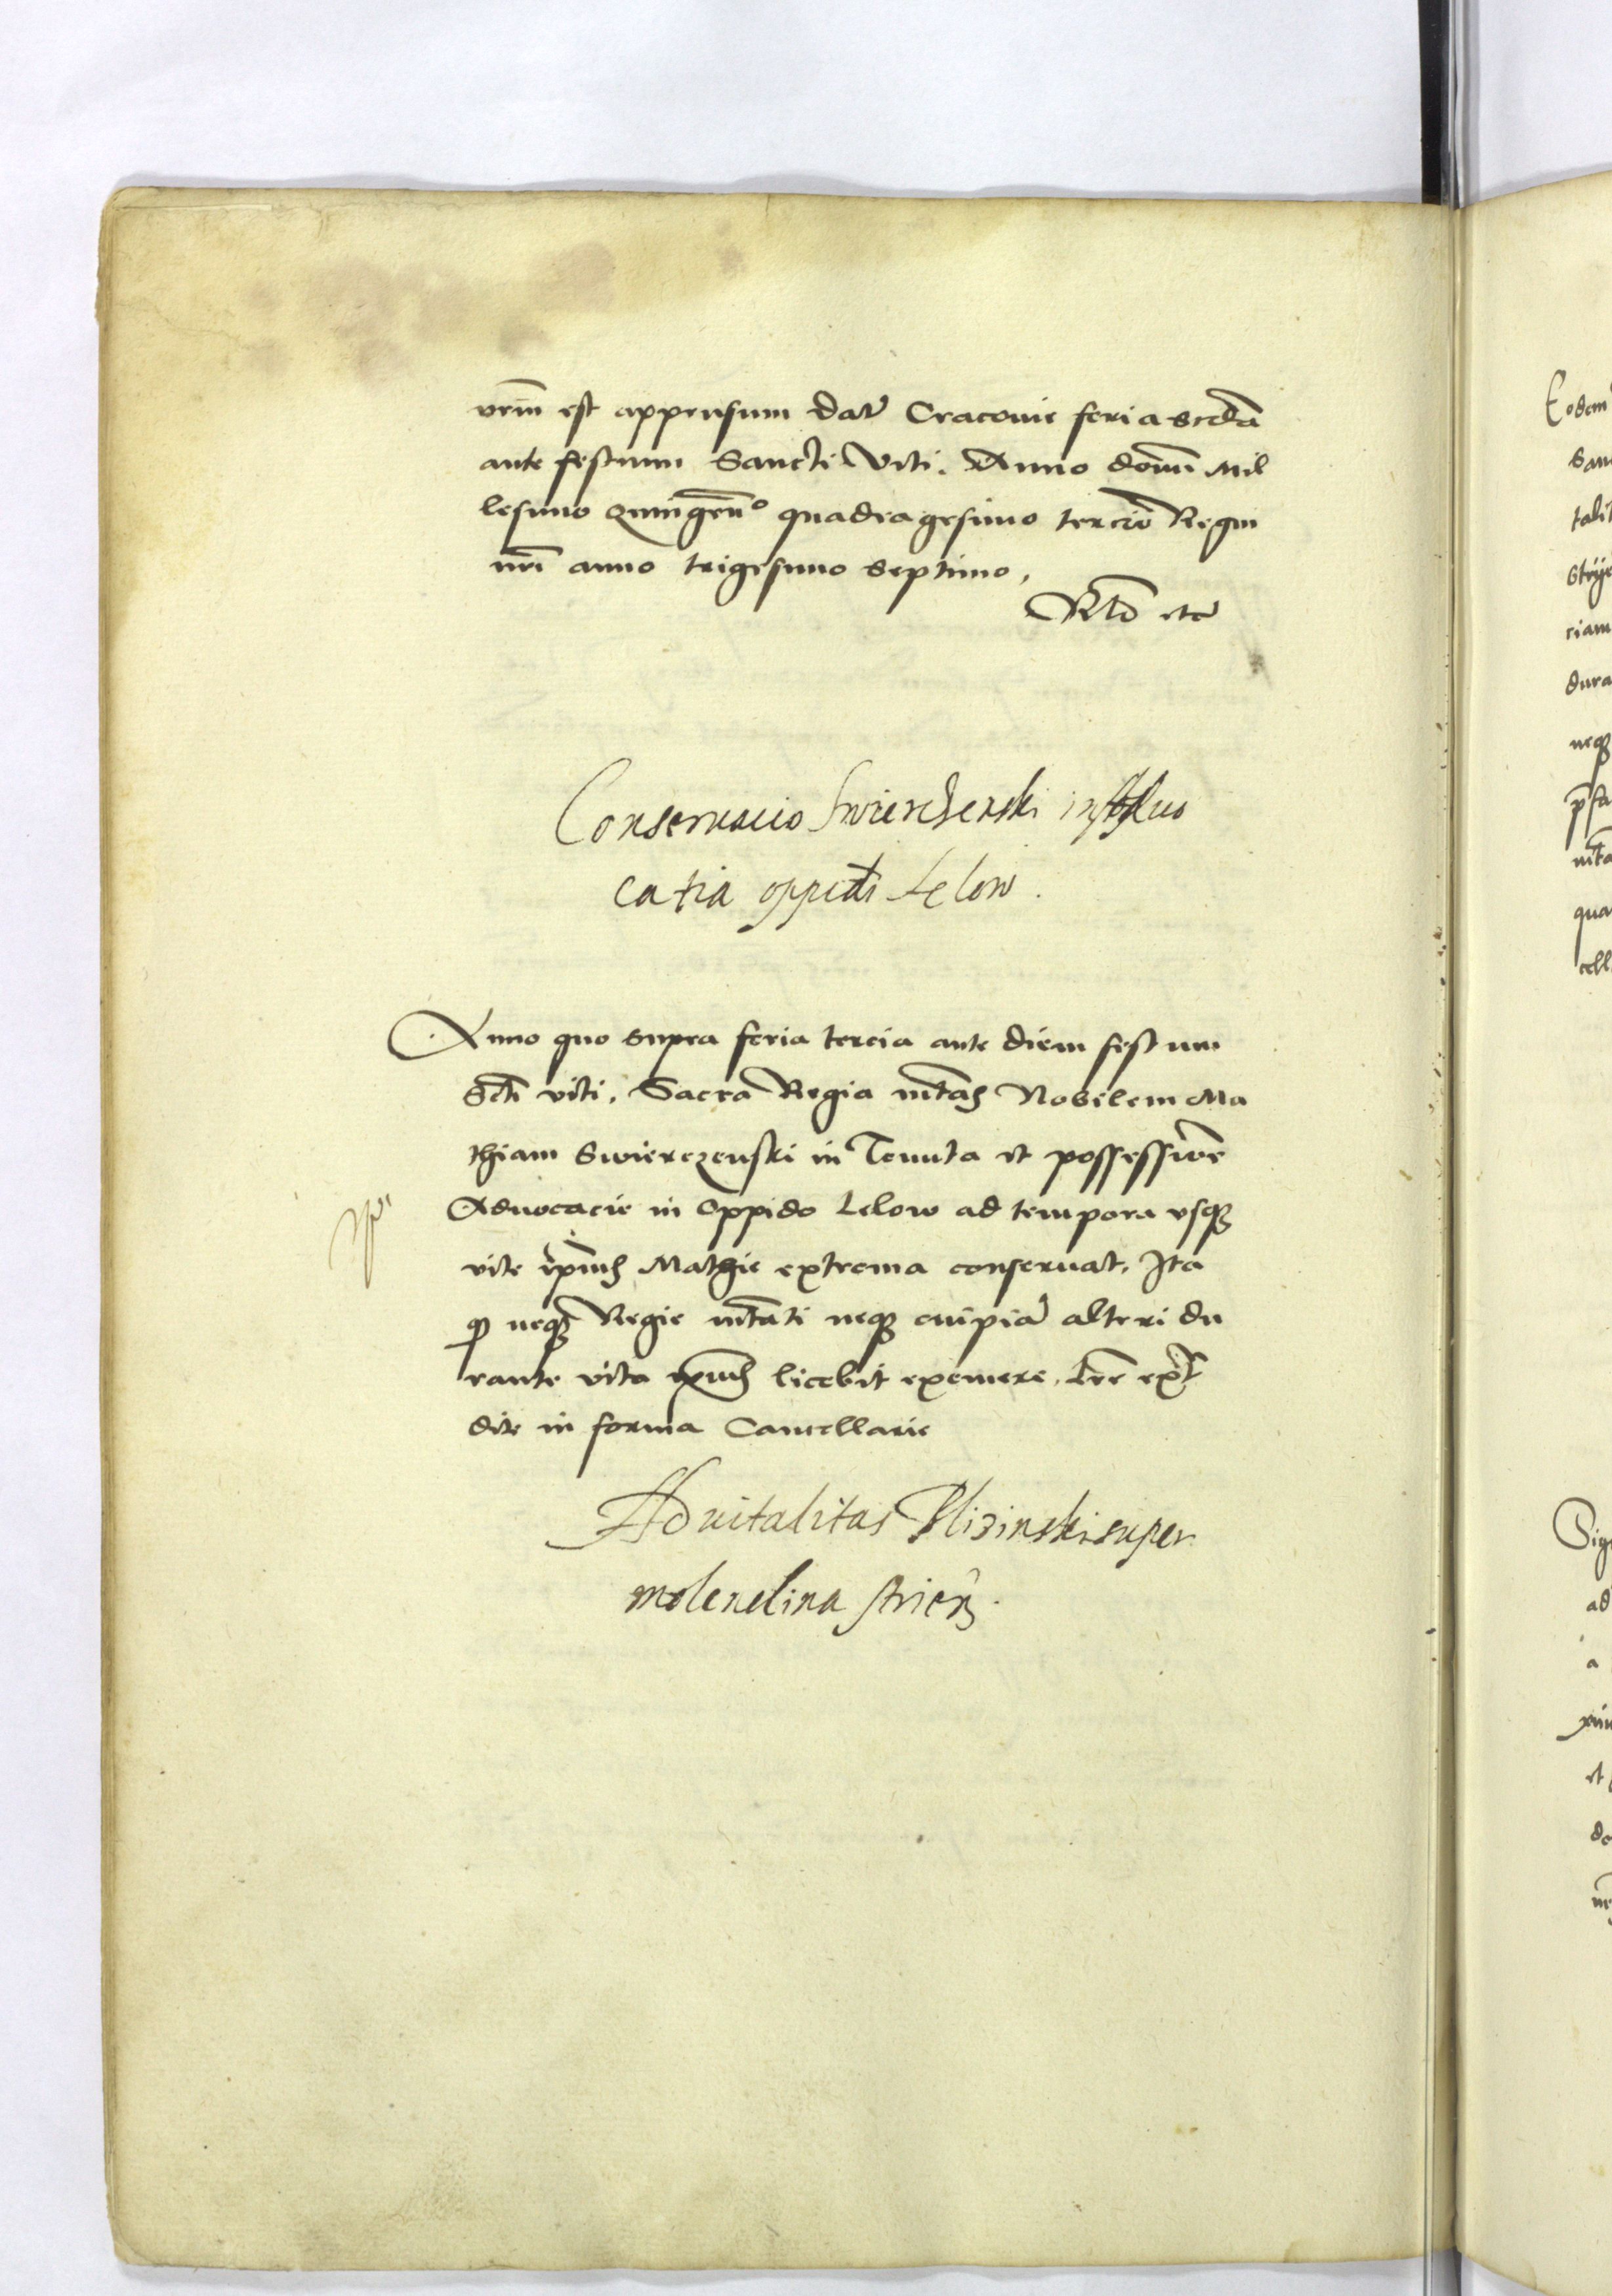 nrm̃ est appensum dat Cracovie feria scdã
ante festum Sancti Viti. Anno domĩ Mil
lesimo Quingenᵒ quadragesimo tercio Regni
nr̃i anno trigesimo septimo,
Rtõ etc
Conservacio Swierczenski in Advo
catia oppidi Lelow.
Anno quo supra feria tercia ante diem festum
Scti viti. Sacra Regia mtas Nobilem Ma
thiam Swierczenski in Tenuta et possessione
Advocacie in Oppido Lelow ad tempora usq
vite ipius Mathie extrema conservat. Ita
q neq Regie mtati neq cuipiã alteri du
rante vita ipius licebit exemere. Lrẽ expe
dite in forma Cancellarie
Advitalitas super
molendina Strien.
Eodem
San
talit
Stryie
ciam
dura
neq
pfa
mta
qua
cell
Sig
ad
a
et
do